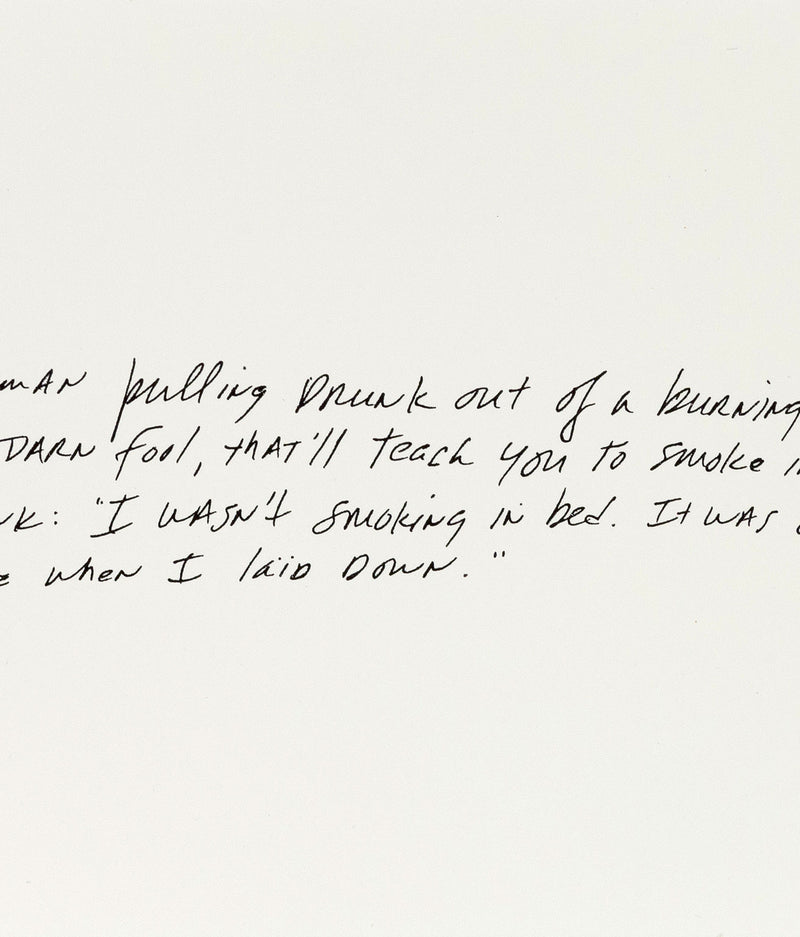 man pulling Drunk out of a burning
Darn fool, that'll teach you to smoke
: "I wasn't smoking in bed. It was
when I laid Down."